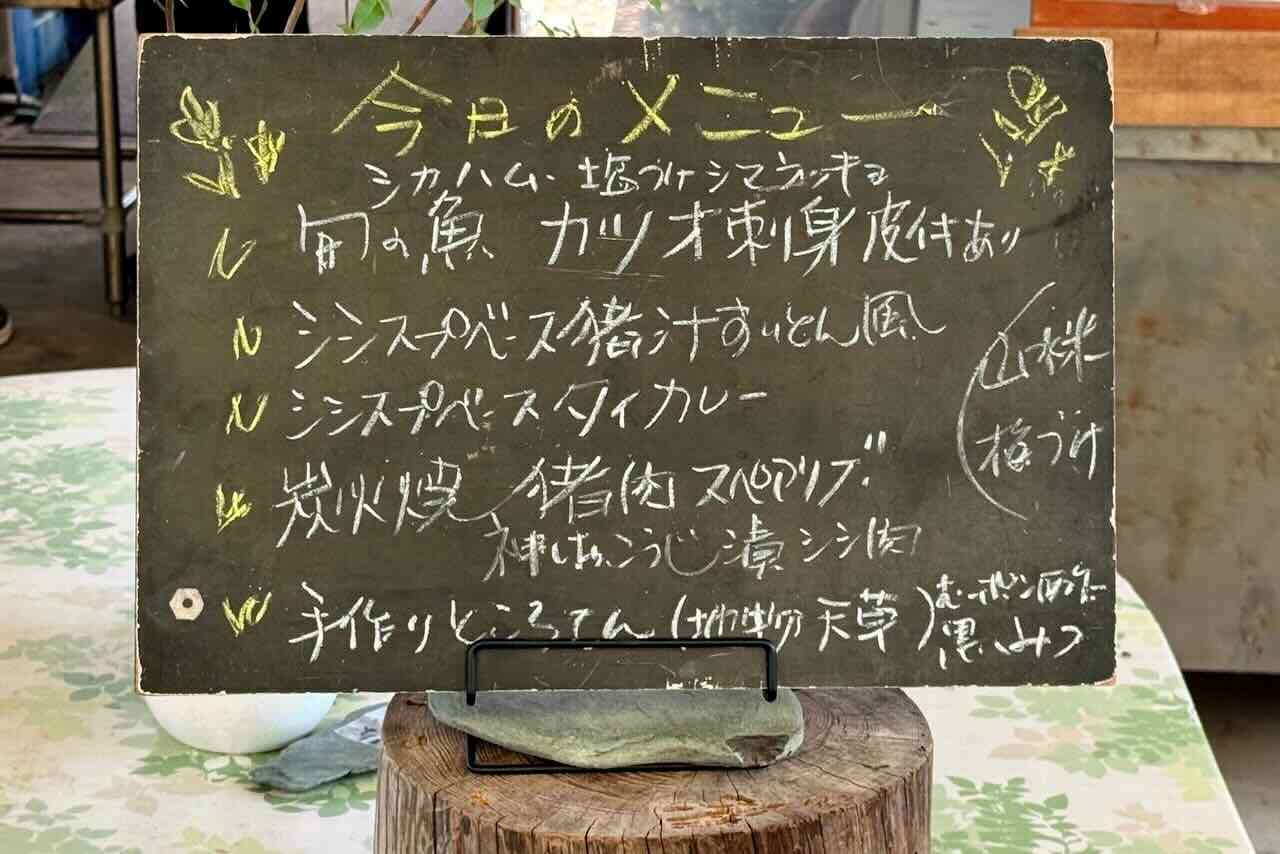 今日のメニュー
シカハム、塩づけシマラッキョ
旬の魚 カツオ刺身皮付あり
シシスープベース猪汁すいとん風
シシスープベースタイカレー
山桃
梅づけ
炭火焼 猪肉スペアリブ
こうじ漬シシ肉
手作りところてん(地物天草)
黒みつ